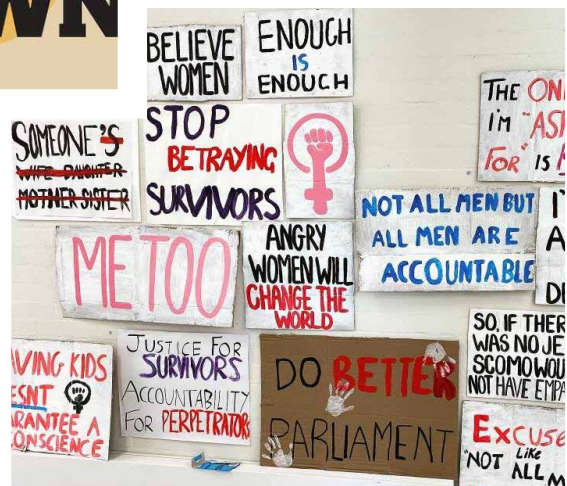 WN
BELIEVE
WOMEN
ENOUGH
IS
ENOUGH
THE ON
I'M "AS
FOR" IS
SOMEONE'S
WIFE DAUGHTER
MOTHER SISTER
STOP
BETRAYING
SURVIVORS
NOT ALL MEN BUT
ALL MEN ARE
ACCOUNTABLE
ME TOO
ANGRY
WOMEN WILL
CHANGE THE
WORLD
SO, IF THER
WAS NO JE
SCOMO WOU
NOT HAVE EMPA
VING KIDS
ESNT
RANTEE A
ONSCIENCE
JUSTICE FOR
SURVIVORS
ACCOUNTABILITY
FOR PERPETRATOR
DO BETTER
PARLIAMENT
EXCUSE
"NOT LIKE
ALL M